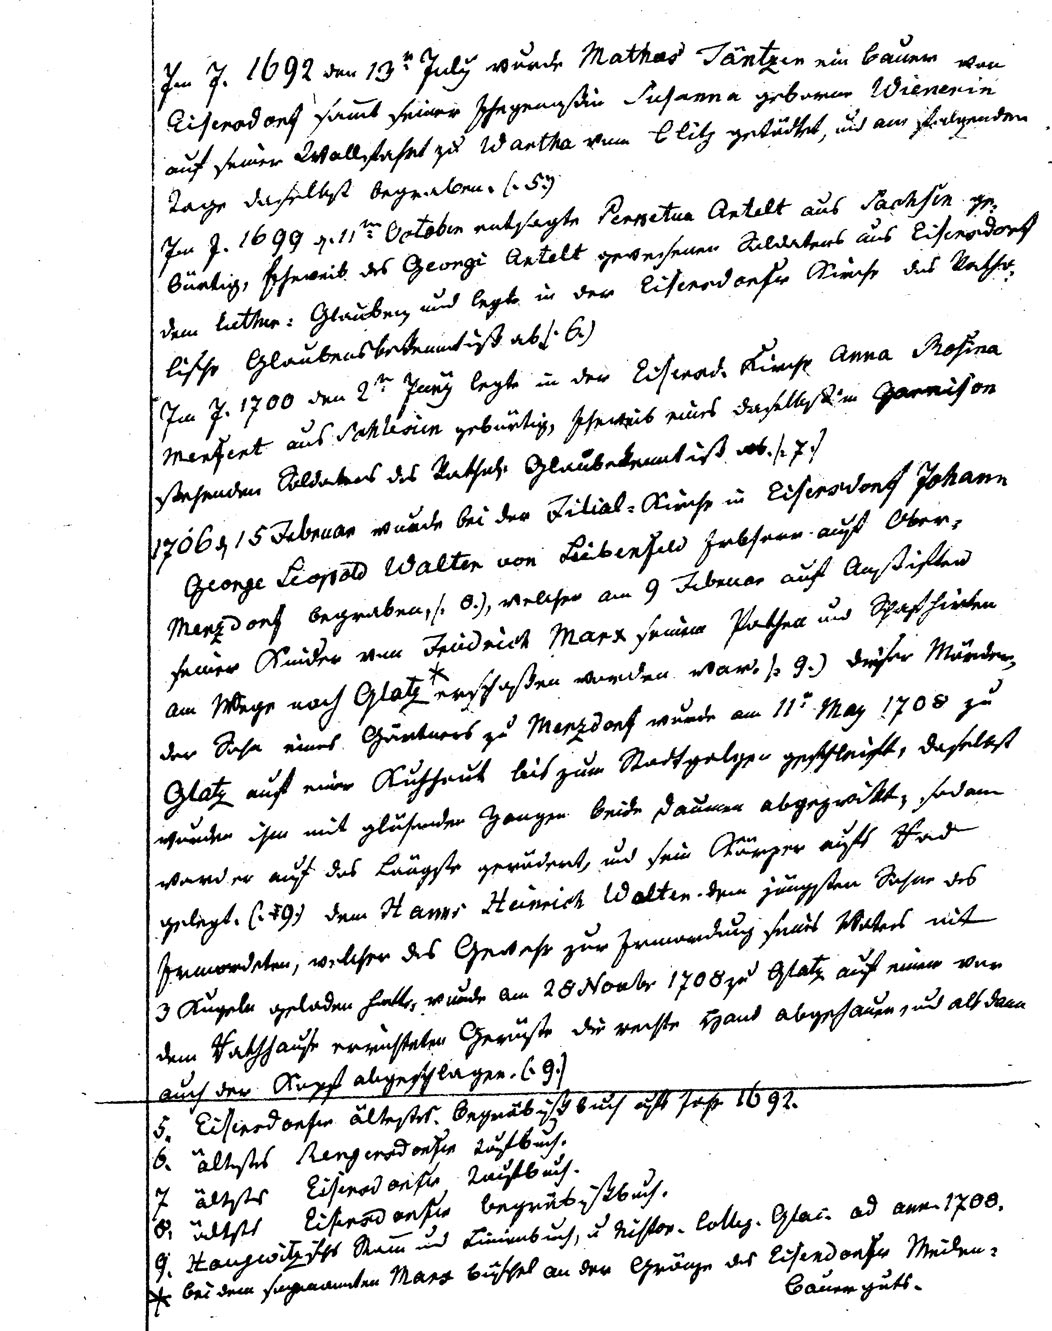 Im J. 1692 den 13n July wurde Mathes Täntzer ein Bauer von
Eisersdorf samt seiner Ehegenossin Susanna geborne Wienerin
auf seiner Wallfahrt zu Wartha vom Blitz getödtet, und am folgenden
Tage daselbst begraben. (:5:)
Im J. 1699 d. 11ten October entsagte Perpetua Antelt aus Sachsen ge-
bürtig, Eheweib des Georgi Antelt gewesenen Soldatens aus Eisersdorf
dem luther: Glauben, und legte in der Eisersdorfer Kirche das Katho-
lische Glaubensbekenntniß ab (:6.)
Im J. 1700 den 2tn Juny legte in der Eisersd. Kirche Anna Rosina
aus Schlesien gebürtig, Eheweib eines daselbst in Garnison
stehenden Soldatens das Kathol. Glaubekenntniß ab. (:7.)
1706 d 15 Februar wurde bei der Filial-Kirche in Eisersdorf Johann
George Leopold Walter von Liebenfeld Erbherr auf Ober-
Merzdorf begraben, (:8.), welcher am 9 Februar auf Anstiften
seiner Kinder von Friedrich Marx seinem Pathen und Schafhirten
am Wege nach Glatz * erschossen worden war. (:9.) Dieser Mörder,
der Sohn eines Gärtners zu Merzdorf wurde am 11tn May 1708 zu
Glatz auf einer Kuhhaut bis zum Stadtgalgen geschleift, daselbst
wurden ihm mit glühender Zangen beide Daumen abgezwikt, sodann
ward er auf das Längste gerädert, und sein Körper aufs Rad
gelegt. (:9.) dem Hanns Heinrich Walter dem jüngsten Sohne des
Ermordeten, welcher das Gewehr zur Ermordung seines Vaters mit
3 Kugeln geladen hatte, wurde am 28 Novbr 1708 zu Glatz auf einem vor
dem Rathhause errichteten Gerüste die rechte Hand abgehauen, und alsdann
auch der Kopf abgeschlagen. (:9.)
5. Eisersdorfer ältestes Begräbnißbuch aufs Jahr 1692.
6. ältestes Rengersdorfer Taufbuch.
7 ältstes Eisersdorfer Taufbuch.
8. ältstes Eisersdorfer Begräbnißbuch.
9. Haugwitzsches Stam und Linienbuch, u Histor. Colleg. Glac. ad ann. 1708.
* bei dem sogenannten Marx büschel an der Gränze des Eisersdorfer Weiden-
Bauer guts.